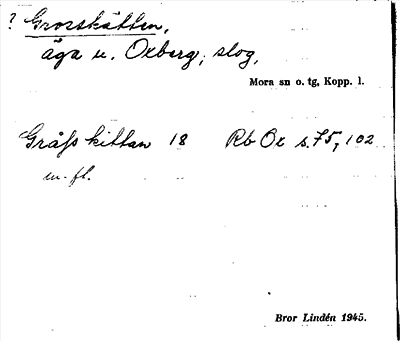 ? Grorskätten,
äga u. Oxberg, slog,
Mora sn o. tg, Kopp. l.
Gråfs kittan 18 Rb Ox s. 75, 102
m. fl.
Bror Lindén 1945.